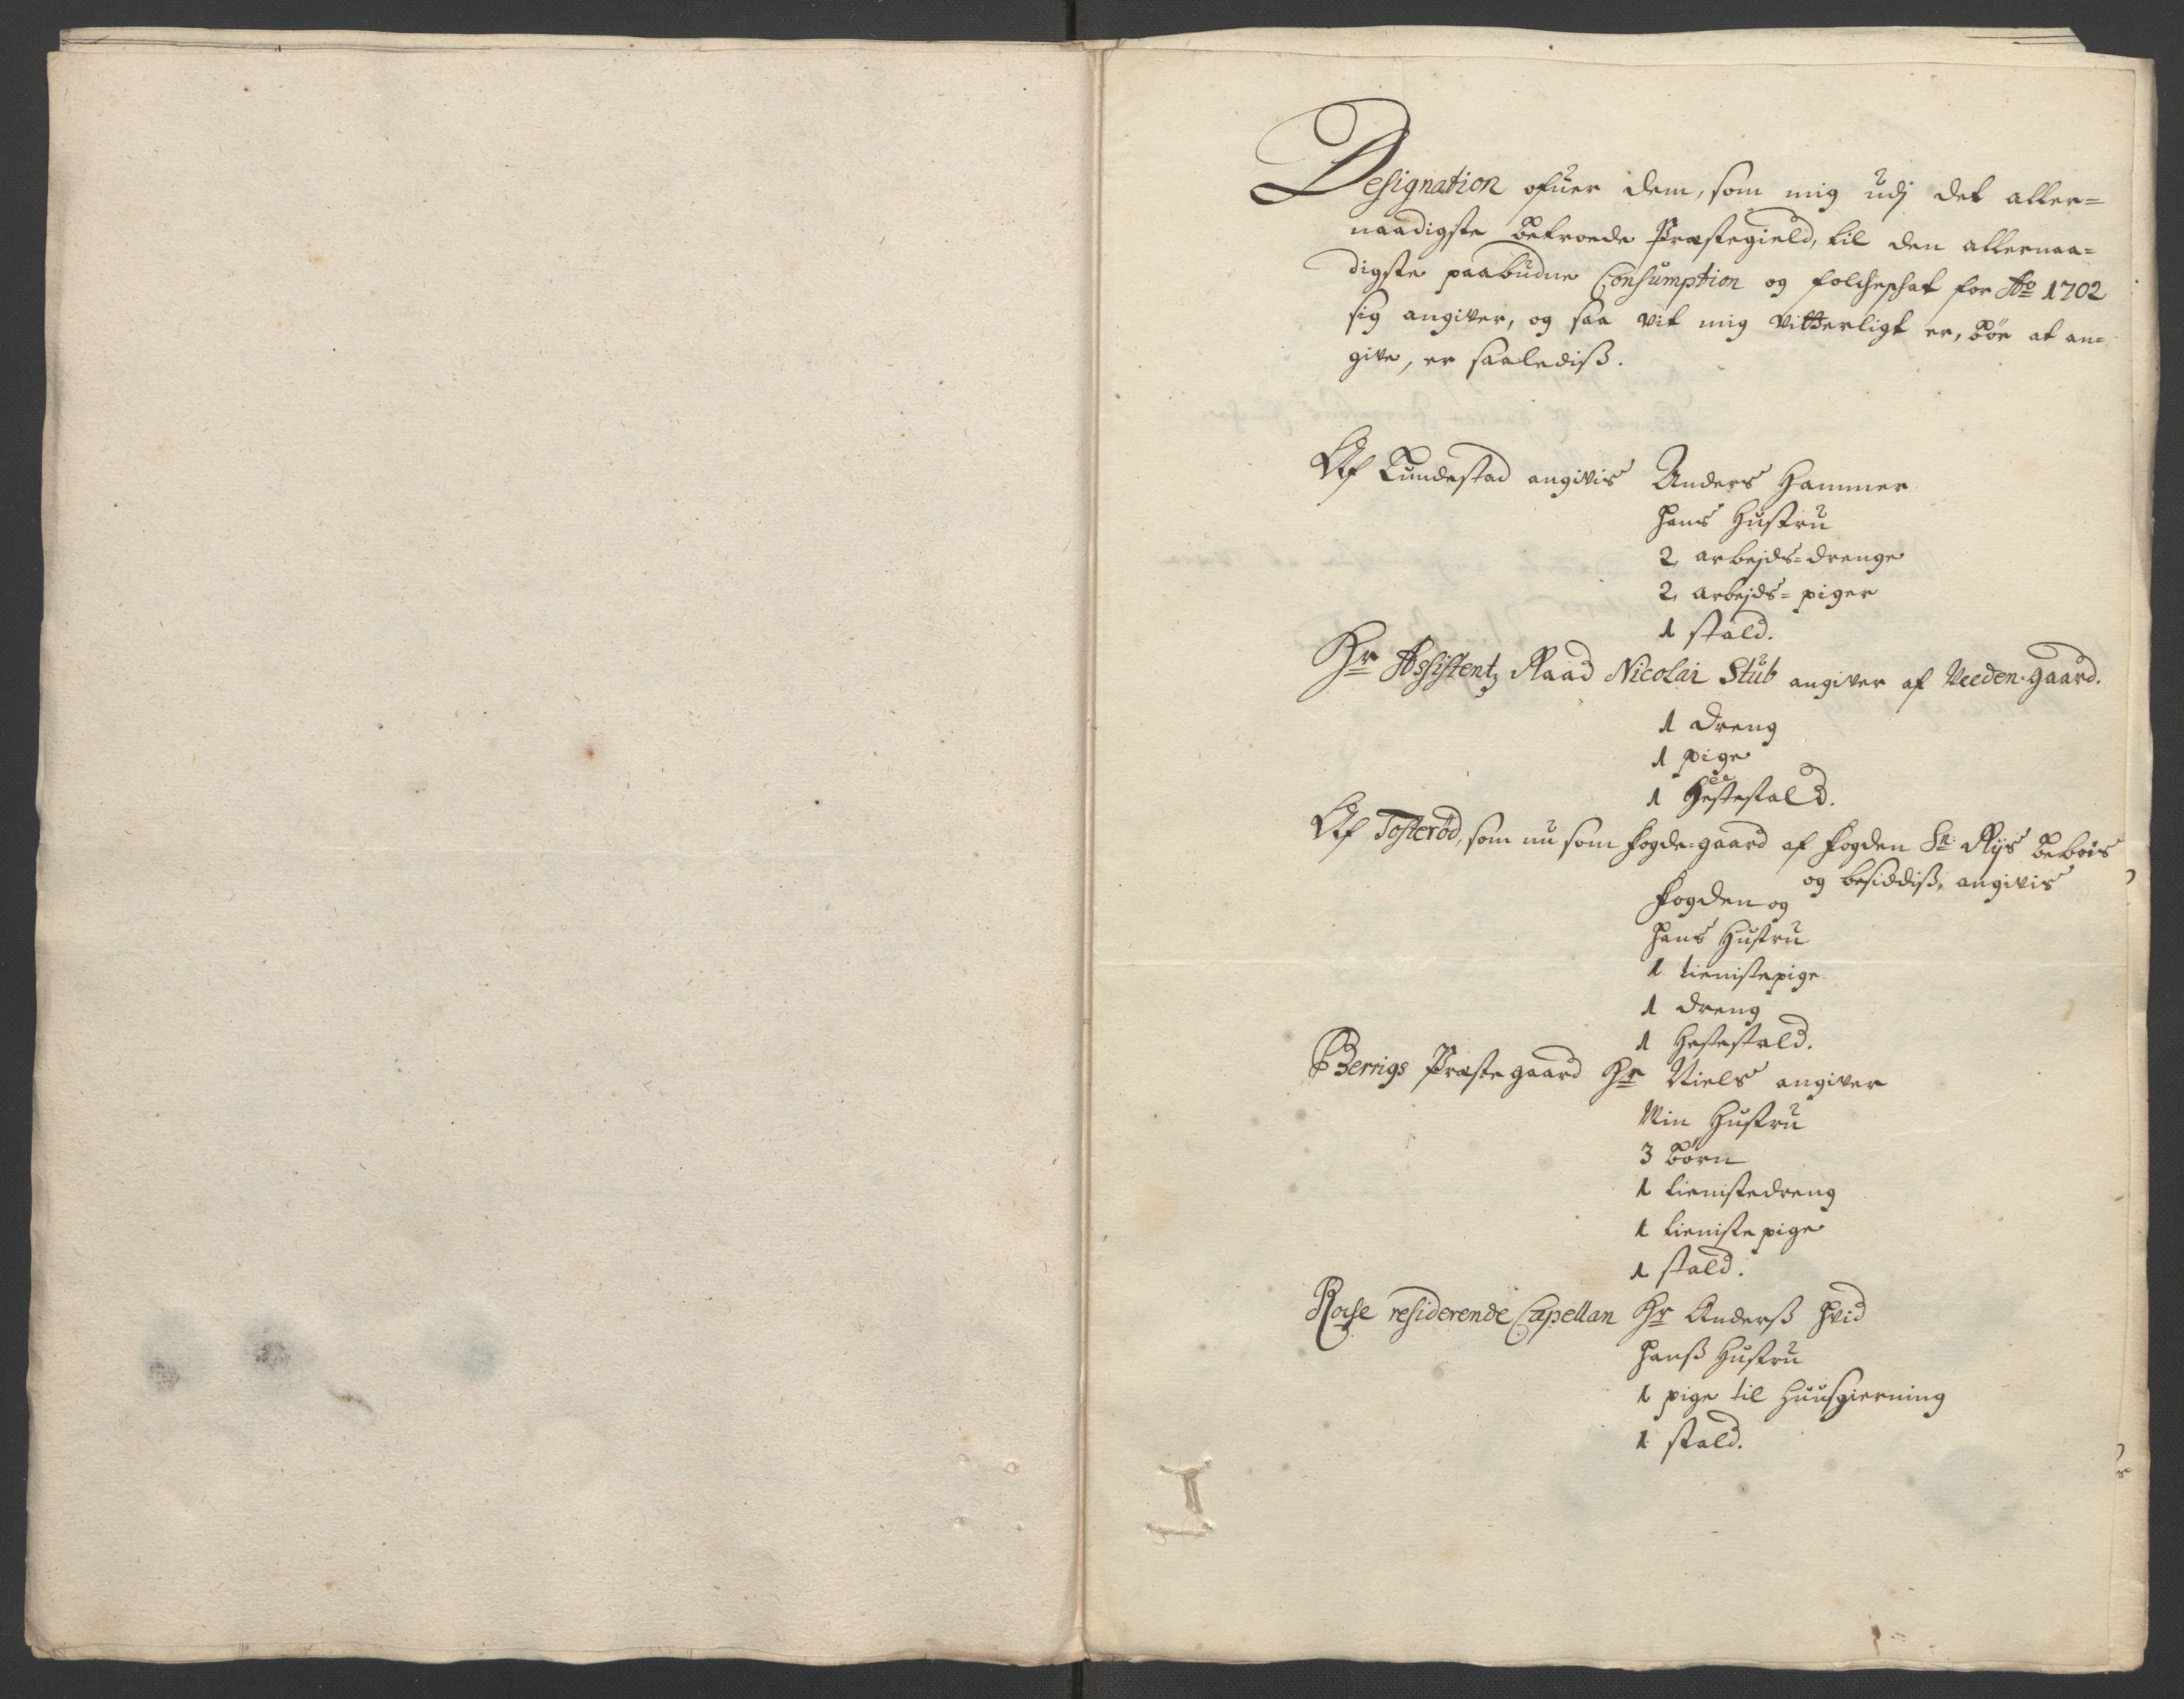 Designation ofuer dem, som mig udj det aller=
naadigste betroede Præstegield, til den allernaa=
digste paabudne Consumption og folcheskat for Ao 1702
sig angiver, og saa vit mig vitterligt er, bør at an=
give, er saalediß.
Af Tundestad angivis Anders Hammer
hans Hustru
2 arbejds=drenge
2 arbejds=piger
1 stald.
Hr Assistentz Raad Nicolai Stub angiver af Veeden-gaard.
1 dreng
1 pige
1 Hestestald.
Af Tosterød, som nu som fogde=gaard af fogden Sr Rijs beboes
og besiddiß, angivis
fogden og
hans Hustru
1 tienistepige
1 dreng
1 Hestestald.
Berrigs Præstegaard Hr Niels angiver
Min Hustru
3 børn
1 tienistedreng
1 tienistepige
1 stald.
residerende Capellan Hr Anderß Hvid
hanß Hustru
1 pige til Huusgierning
1 stald.